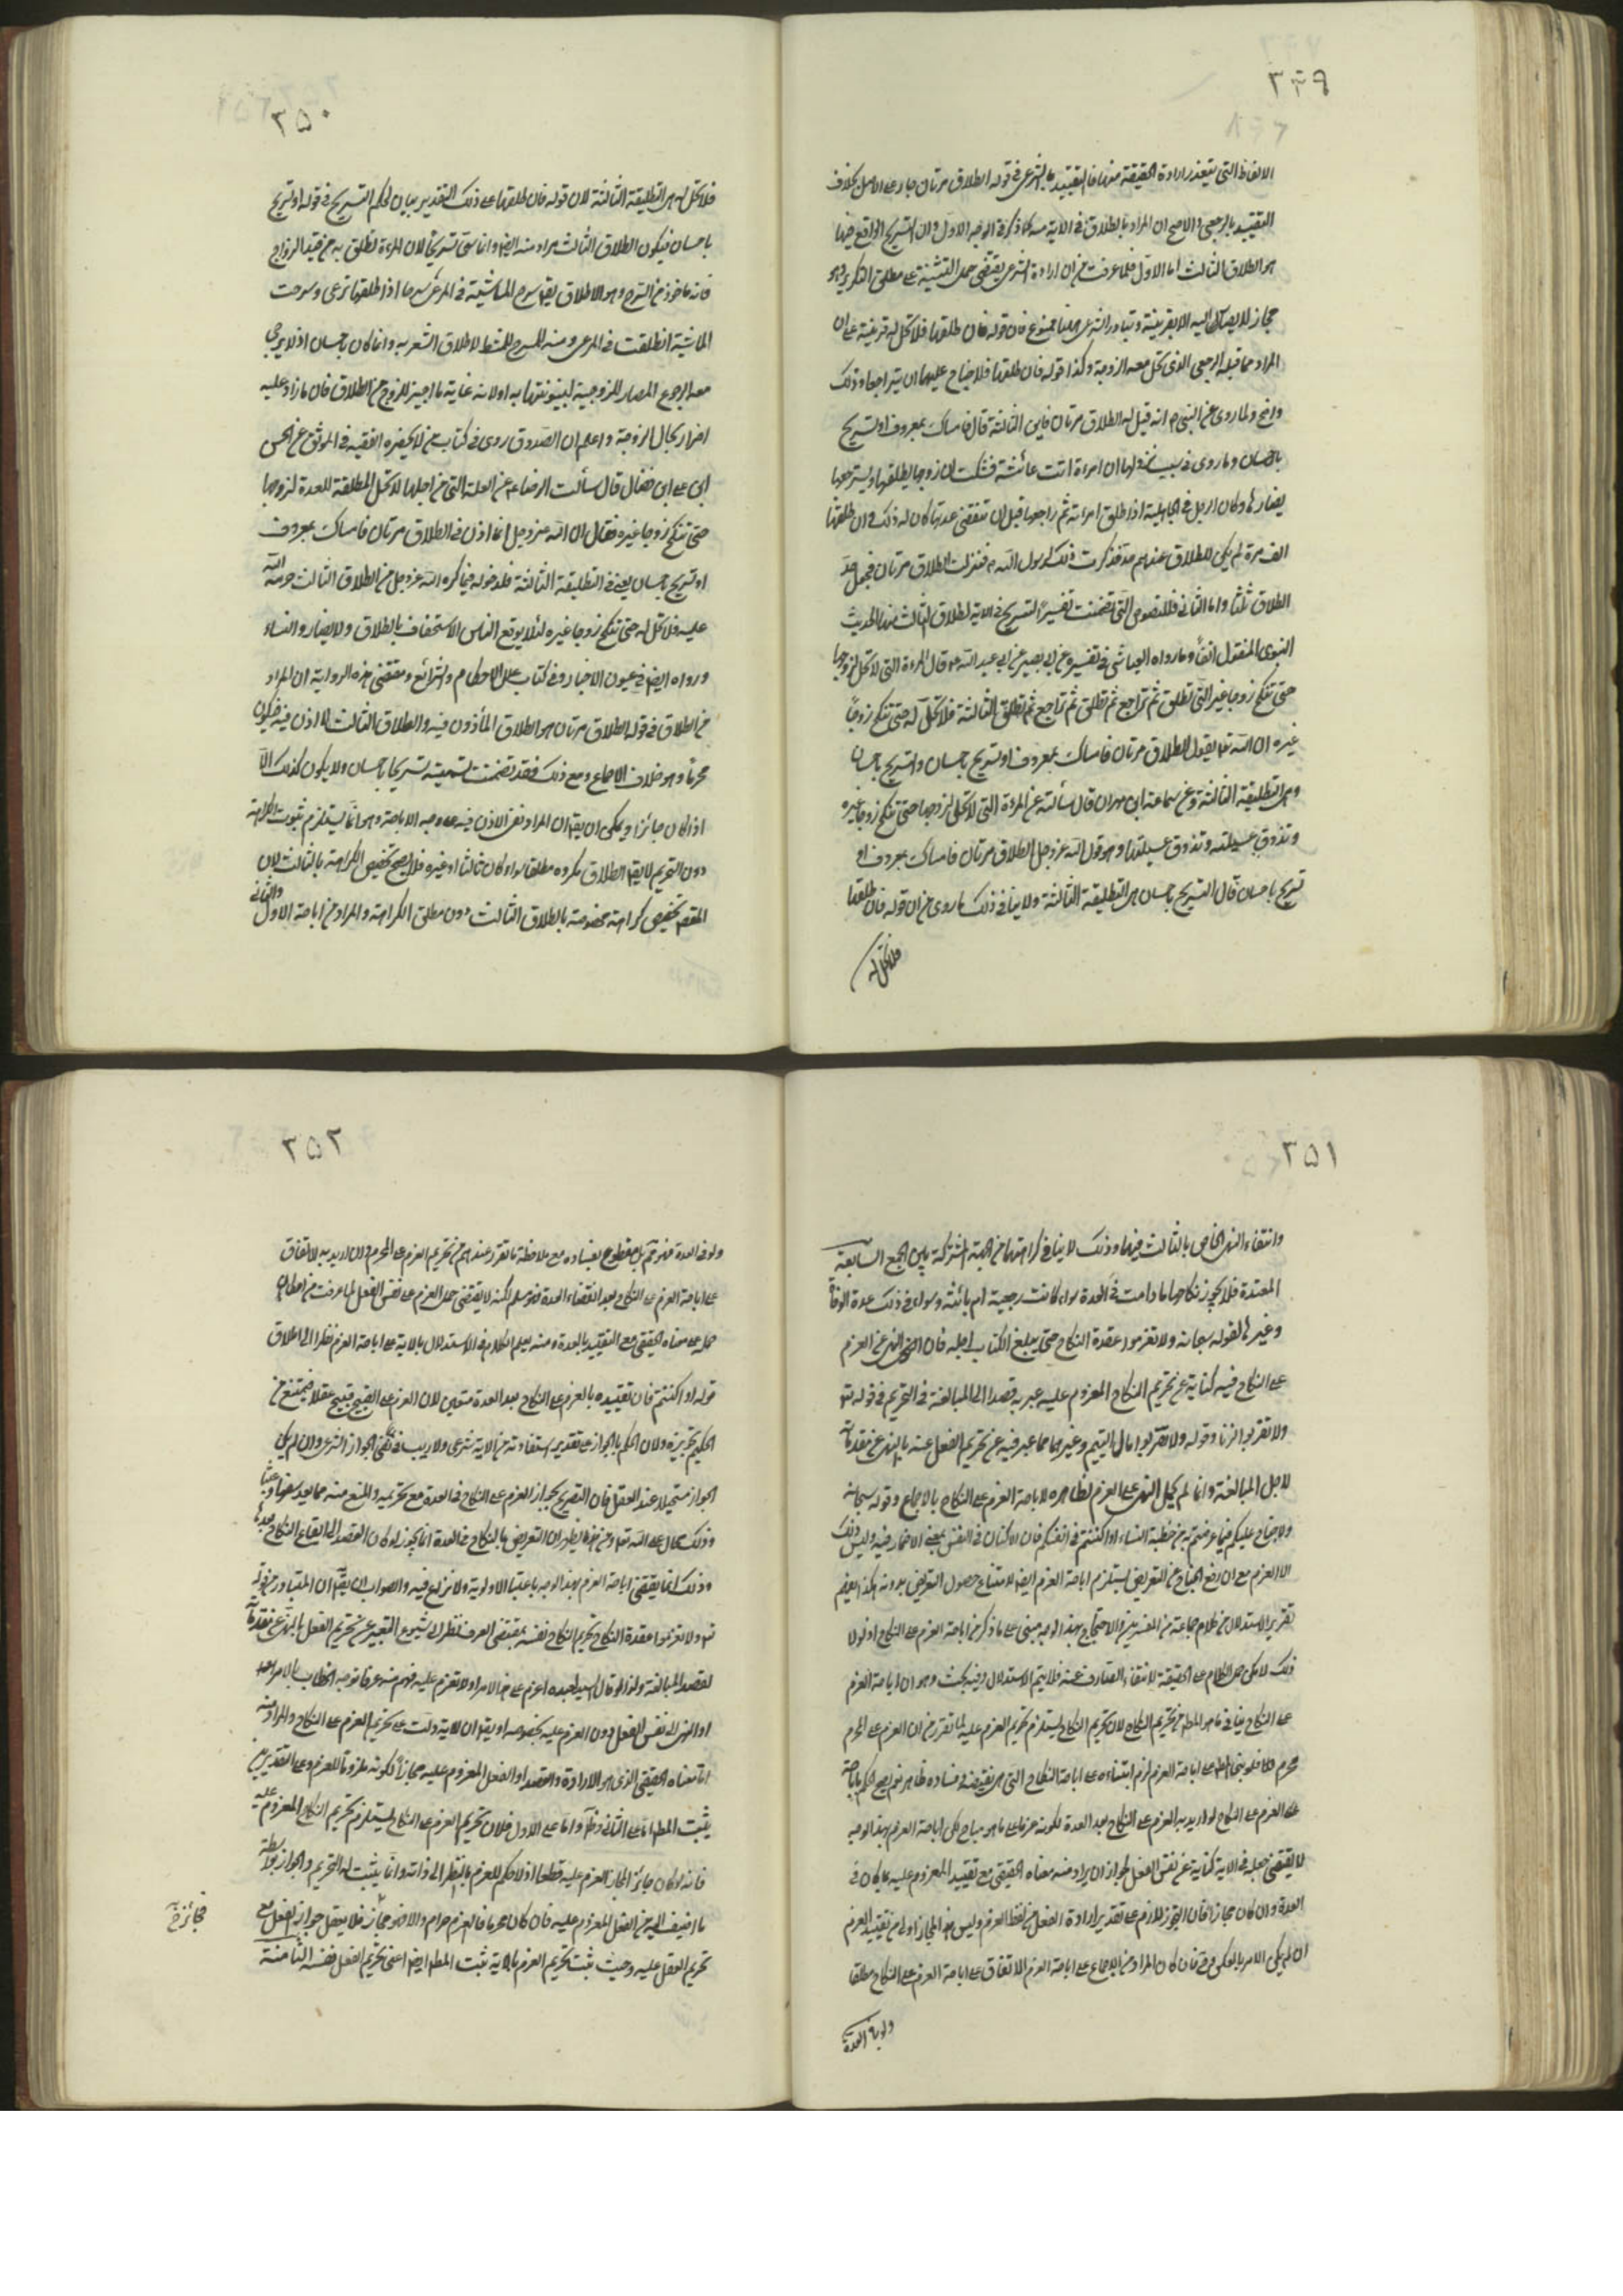 ٣٤٩
الالفاظ التى يتعذر ارادة الحقيقة منها فالتقييد بالشرعى فى قوله الطلاق مرتان جار على الاصل بخلاف
التقييد بالرجعى والاصح ان المراد بالطلاق فى الاية منه كما ذكر فى الوجه الاول وان التسريح الواقع فيها
هو الطلاق الثالث اما الاول فلما عرفت من ان ارادة الشرعى يقتضى حمل التثنية على مطلق التكرير وهو
مجاز لا يصار اليه الا بقرينة وتبادر الشرعى هنا ممنوع فان قوله فان طلقها فلا تحل له قرينة على ان
المراد مما قبله الرجعى الذى تحل معه الزوجة وكذا قوله فان طلقها فلا جناح عليهما ان يتراجعا وذلك
واضح ولما روى عن النبى ص انه قيل له الطلاق مرتان فاين الثالثة قال فامساك بمعروف او تسريح
باحسان وما روى فى سبب نزولها ان امراة اتت عائشة فشكت ان زوجها يطلقها ويسترجعها
يضارها وكان الرجل فى الجاهلية اذا طلق امراته ثم راجعها قبل ان تنقضى عدتها كان له ذلك وان طلقها
الف مرة لم يكن للطلاق عندهم حد فذكرت ذلك لرسول الله ص فنزلت الطلاق مرتان فجعل حد
الطلاق ثلثا واما الثانى فللنصوص التى تضمنت تفسير التسريح فى الاية لطلاق الثالث منها الحديث
النبوى المنقول انفا وما رواه العياشى فى تفسيره عن ابى بصير عن ابى عبد الله ع قال المراة التى لا تحل لزوجها
حتى تنكح زوجا غيره التى تطلق ثم تراجع ثم تطلق ثم تراجع ثم تطلق الثالثة فلا تحل له حتى تنكح زوجا
غيره ان الله تعا يقول الطلاق مرتان فامساك بمعروف او تسريح باحسان والتسريح باحسان
هو التطليقة الثالثة وعن سماعة ابن مهران قال سألته عن المراة التى لا تحل لزوجها حتى تنكح زوجا غيره
وتذوق عسيلته ويذوق عسيلتها وهو قول الله عز وجل الطلاق مرتان فامساك بمعروف او
تسريح باحسان قال التسريح باحسان هو التطليقة الثالثة ولا ينافى ذلك ما روى من ان قوله فان طلقها
فلا تحل له
٣٥٠
فلا تحل له هى التطليقة الثالثة لان قوله فان طلقها على ذلك التقدير بيان لحكم التسريح فى قوله او تسريح
باحسان فيكون الطلاق الثالث مرادا منه ايضا وانما سمى تسريحا لان المراة تطلق به من قيد الزواج
فانه ماخوذ من السرح وهو الاطلاق يقم سرح الماشية فى المرعى سرحا اذا طلقها ترعى وسرحت
الماشية انطلقت فى المرعى ومنه المسرح للمشط لاطلاق الشعر به وانما كان باحسان اذ لا يرجى
معه الرجوع المضار للزوجية لبينونتها به او لانه غاية ما اجيز للزوج من الطلاق فان ما زاد عليه
اضرار بحال الزوجة واعلم ان الصدوق روى فى كتاب من لا يحضره الفقيه فى الموثق عن الحسن
ابن على ابن فضال قال سألت الرضا ع عن العلة التى من اجلها لا تحل المطلقة للعدة لزوجها
حتى تنكح زوجا غيره فقال ان الله عز وجل انما اذن فى الطلاق مرتان فامساك بمعروف
او تسريح باحسان يعنى فى التطليقة الثالثة فلدخوله فيما كره الله عز وجل من الطلاق الثالث حرمه الله
عليه فلا تحل له حتى تنكح زوجا غيره لئلا يوقع الناس الاستخفاف بالطلاق ولا يضار والنساء
ورواه ايضا فى عيون الاخبار وفى كتاب علل الاحكام والشرائع ومقتضى هذه الرواية ان المراد
من الطلاق فى قوله الطلاق مرتان هو الطلاق المأذون فيه والطلاق الثالث لا اذن فيه فيكون
محرما وهو خلاف الاجماع ومع ذلك فقد تضمنت تسميته تسريحا باحسان ولا يكون كذلك الا
اذا كان جائزا ويمكن ان يقم ان المراد نفى الاذن فيه على وجه الاباحة وهو انما يستلزم ثبوت الكراهة
دون التحريم لا يقم الطلاق مكروه مطلقا سواء كان ثالثا او غيره فلا يصح تخصيص الكراهة بالثالث لان
المقصم تخصيص كراهة مخصوصة بالطلاق الثالث دون مطلق الكراهة والمراد من اباحة الاول والثانى
٣٥١
وانتفاء النهى الخاص بالثالث فيهما وذلك لا ينافى كراهتهما من الجهة المشتركة بين الجمع السابعة
المعتدة فلا يجوز نكاحها ما دامت فى العدة سواء كانت رجعية ام بائنة وسواء فى ذلك عدة الوفاة
وغيرها لقوله سبحانه ولا تعزموا عقدة النكاح حتى يبلغ الكتاب اجله فان النهى عن العزم
على النكاح فيه كناية عن تحريم النكاح المعزوم عليه عبر به قصدا الى المبالغة فى التحريم فى قوله تعا
ولا تقربوا الزنا وقوله ولا تقربوا مال اليتيم وغيرهما مما عبر فيه عن تحريم الفعل عنه بالنهى عن مقدماته
لاجل المبالغة وانما لم يحمل النهى على العزم لظاهره لاباحة العزم على النكاح بالاجماع وقوله سبحانه
ولا جناح عليكم فيما عرضتم به من خطبة النساء او اكننتم فى انفسكم فان الاكنان فى النفس بمعنى الاضمار فيه وليس ذلك
الا العزم مع ان رفع الجناح عن التعريض يستلزم اباحة العزم ايضا لامتناع حصول التعريض بدونه هكذا يفهم
تقرير الاستدلال من كلام جماعة من المفسرين والاحتجاج بهذا الوجه مبنى على ما ذكر من اباحة العزم على النكاح اذ لولا
ذلك لامكن حمل الكلام على الحقيقة لانتفاء الصارف عنه فلا يتم الاستدلال وفيه بحث وهو ان اباحة العزم
على النكاح ينافى ما هو المطم من تحريم النكاح لان تحريم النكاح يستلزم تحريم العزم عليه لما تقرر من ان العزم على الحرم
محرم فلو بنى المطم على اباحة العزم لزم ابتناءه على اباحة النكاح التى هى نقيضه وفساده ظاهر نعم يصح الحكم باباحة
العزم على النكاح لو اريد به العزم على النكاح بعد العدة لكونه عزما على ما هو مباح لكن اباحة العزم بهذا الوجه
لا يقتضى جعله فى الاية كناية عن نفس الفعل لجواز ان يراد منه معناه الحقيقى مع تقييد المعزوم عليه بما يكون فى
العدة وان كان مجازا فان التجوز لازم على تقدير ارادة الفعل من لفظ العزم وليس هذا المجاز اولى من تقييد العزم
ان لم يكن الامر بالعكس وح فان كان المراد من الاجماع على اباحة العزم الاتفاق على اباحة العزم على النكاح مطلقا
ولو فى العدة
٣٥٢
ولو فى العدة فهو مم بل مقطوع بفساده مع ملاحظة ما تقرر عندهم من تحريم العزم على المحرم وان اريد به الاتفاق
على اباحة العزم على النكاح بعد انقضاء العدة فهو مسلم لكنه لا يقتضى حمل العزم على نفس الفعل لما عرفت من امكان
حمله على معناه الحقيقى مع التقييد بالعدة ومنه يعلم الكلام فى الاستدلال بالاية على اباحة العزم نظرا الى اطلاق
قوله او اكننتم فان تقييده بالعزم على النكاح بعد العدة متعين لان العزم على القبيح قبيح عقلا فيمتنع من
الحكيم تجويزه ولان الحكم بالجواز على تقدير استفادته من الاية شرعى ولا ريب فى نفى الجواز الشرعى وان لم يكن
الجواز مستحيلا عند العقل فان التصريح بجواز العزم على النكاح فى العدة مع تحريمه والمنع منه مما يعد سفها وعبثا
وذلك محال على الله تعا ومن هذا يظهر ان التعريض بالنكاح فى العدة انما يجوز لو كان القصد الى ايقاع النكاح بعدها
وذلك انما يقتضى اباحة العزم بهذا الوجه باعتبار الاولوية ولا نزاع فيه والصواب ان يقم ان المتبادر من قوله
تعا ولا تعزموا عقدة النكاح تحريم النكاح نفسه بمقتضى العرف نظرا الى شيوع التعبير عن تحريم الفعل بالنهى عن مقدماته
لقصد المبالغة ولذا لو قال السيد لعبده اعزم على هذا الامر او لا تعزم عليه فهم منه عرفا توجه الخطاب بالامر
او النهى الى نفس الفعل دون العزم عليه بخصوصه او يقم ان الاية دلت على تحريم العزم على النكاح والمراد منه
اما معناه الحقيقى الذى هو الارادة والقصد او الفعل المعزوم عليه مجازا لكونه ملزوما للعزم وعلى التقديرين
يثبت المطم اما على الثانى فظم واما على الاول فلان تحريم العزم على النكاح يستلزم تحريم النكاح المعزوم عليه
فانه لو كان جائزا لجاز العزم عليه قطعا اذ لا حكم للعزم بالنظر الى ذاته وانما يثبت له التحريم والجواز بواسطة
ما اضيف اليه من الفعل المعزوم عليه فان كان محرما فالعزم حرام والا فهو جائز فلا يعقل جواز الفعل مع
تحريم العقل عليه وحيث ثبت تحريم العزم بالاية ثبت المطم ايضا اعنى تحريم الفعل نفسه الثامنة
فجائز خ